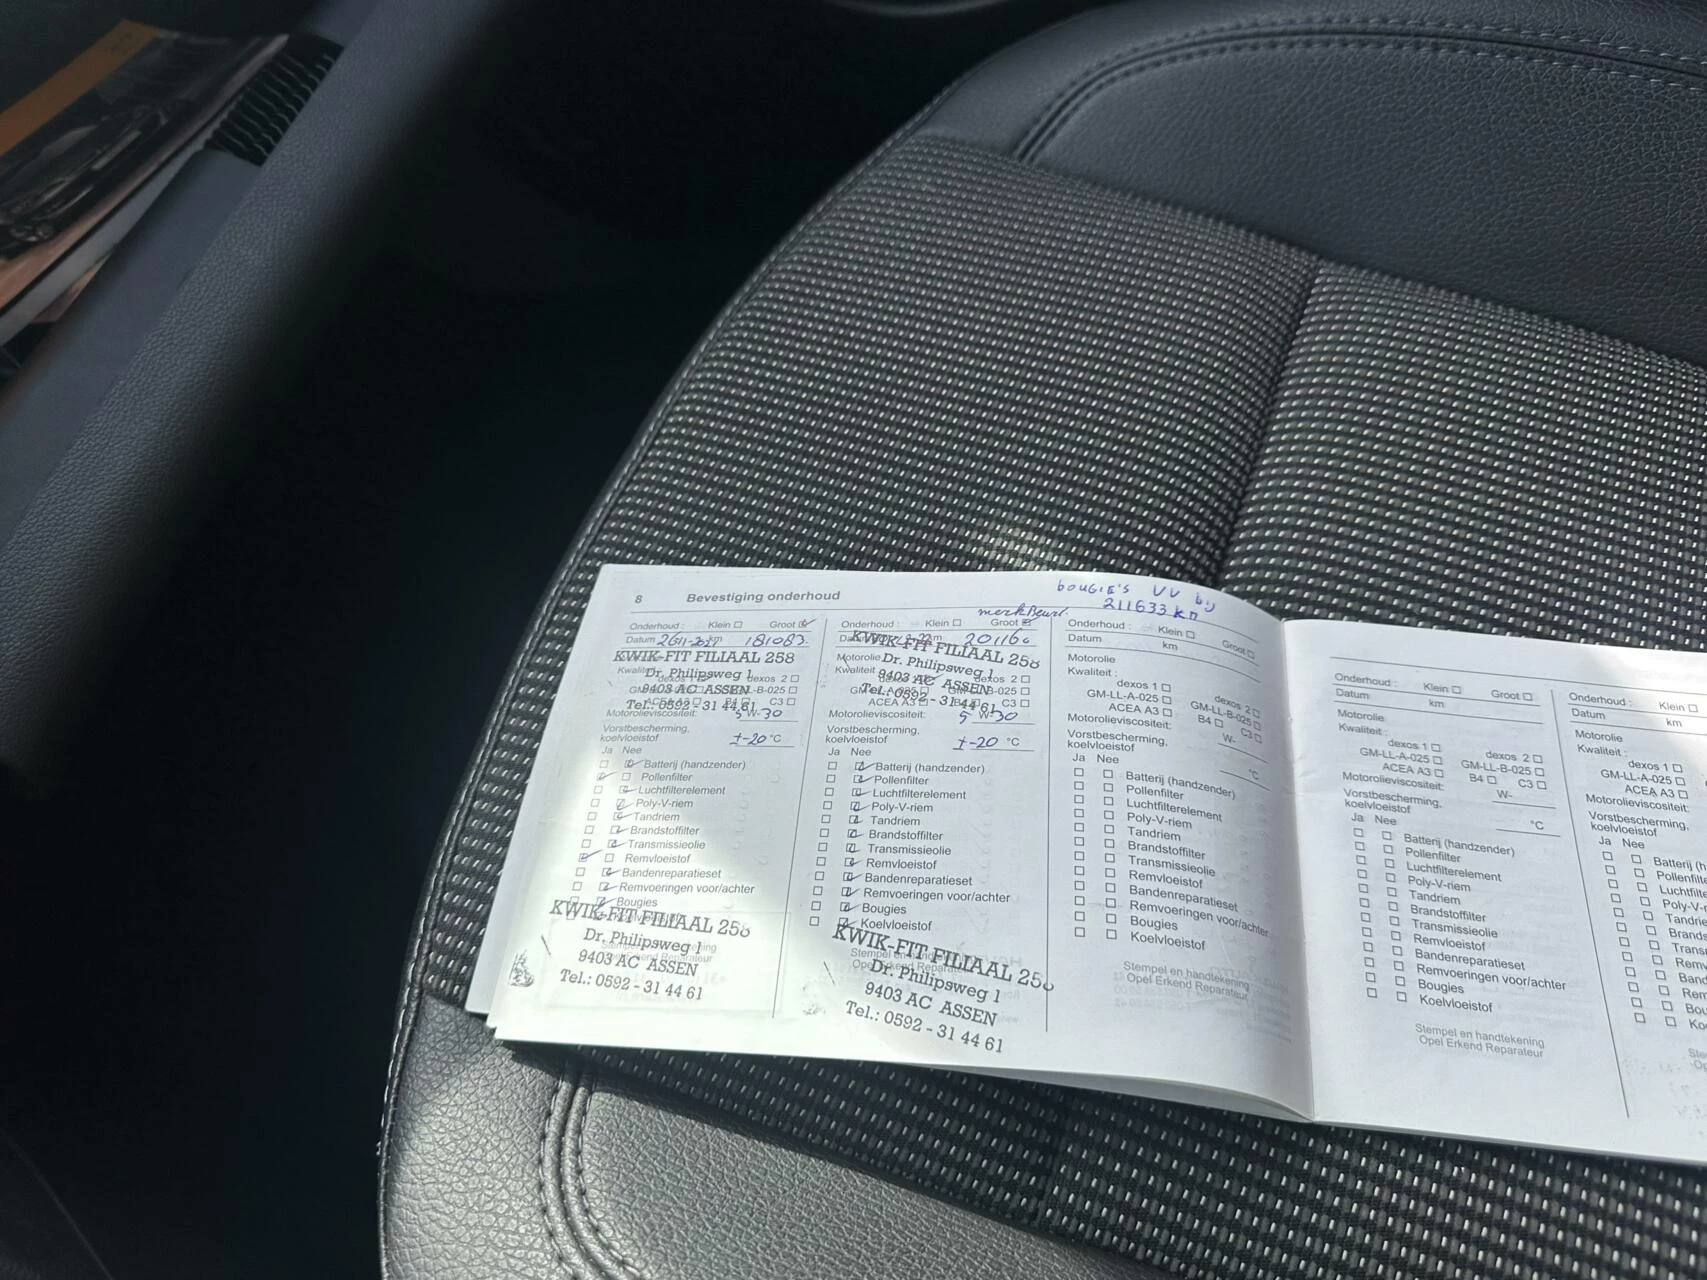 8 Bevestiging onderhoud
bougie's VV bij
211633 km
merkbeurt.
Onderhoud : Klein Groot
Datum km 181083
KWIK-FIT FILIAAL 258
Dr. Philipsweg 1
9403 AC ASSEN
Tel.: 0592 - 31 44 61
Motorolieviscositeit: 5 W-30
Vorstbescherming,
koelvloeistof ±-20 °C
Ja Nee
Batterij (handzender)
Pollenfilter
Luchtfilterelement
Poly-V-riem
Tandriem
Brandstoffilter
Transmissieolie
Remvloeistof
Bandenreparatieset
Remvoeringen voor/achter
Bougies
KWIK-FIT FILIAAL 258
Dr. Philipsweg 1
9403 AC ASSEN
Tel.: 0592 - 31 44 61
Onderhoud : Klein Groot
20116
KWIK-FIT FILIAAL 258
Motorolie Dr. Philipsweg 1
Kwaliteit 9403 AC ASSEN dexos 2
Tel.: 0592 - 31 44 61
ACEA A3 B4 C3
Motorolieviscositeit: 5 W-30
Vorstbescherming,
koelvloeistof ±-20 °C
Ja Nee
Batterij (handzender)
Pollenfilter
Luchtfilterelement
Poly-V-riem
Tandriem
Brandstoffilter
Transmissieolie
Remvloeistof
Bandenreparatieset
Remvoeringen voor/achter
Bougies
Koelvloeistof
KWIK-FIT FILIAAL 258
Stempel en handtekening
Opel Erkend Reparateur
Dr. Philipsweg 1
9403 AC ASSEN
Tel.: 0592 - 31 44 61
Onderhoud : Klein Groot
Datum km
Motorolie
Kwaliteit :
dexos 1 dexos 2
GM-LL-A-025 GM-LL-B-025
ACEA A3 B4 C3
Motorolieviscositeit: W-
Vorstbescherming,
koelvloeistof °C
Ja Nee
Batterij (handzender)
Pollenfilter
Luchtfilterelement
Poly-V-riem
Tandriem
Brandstoffilter
Transmissieolie
Remvloeistof
Bandenreparatieset
Remvoeringen voor/achter
Bougies
Koelvloeistof
Stempel en handtekening
Opel Erkend Reparateur
Onderhoud : Klein Groot
Datum km
Motorolie
Kwaliteit :
dexos 1 dexos 2
GM-LL-A-025 GM-LL-B-025
ACEA A3 B4 C3
Motorolieviscositeit: W-
Vorstbescherming,
koelvloeistof °C
Ja Nee
Batterij (handzender)
Pollenfilter
Luchtfilterelement
Poly-V-riem
Tandriem
Brandstoffilter
Transmissieolie
Remvloeistof
Bandenreparatieset
Remvoeringen voor/achter
Bougies
Koelvloeistof
Stempel en handtekening
Opel Erkend Reparateur
Onderhoud : Klein
Datum km
Motorolie
Kwaliteit :
dexos 1
GM-LL-A-025
ACEA A3
Motorolieviscositeit:
Vorstbescherming,
koelvloeistof
Ja Nee
Batterij (h
Pollenfilte
Luchtfilte
Poly-V-r
Tandrie
Brands
Trans
Remv
Band
Rem
Bou
Ko